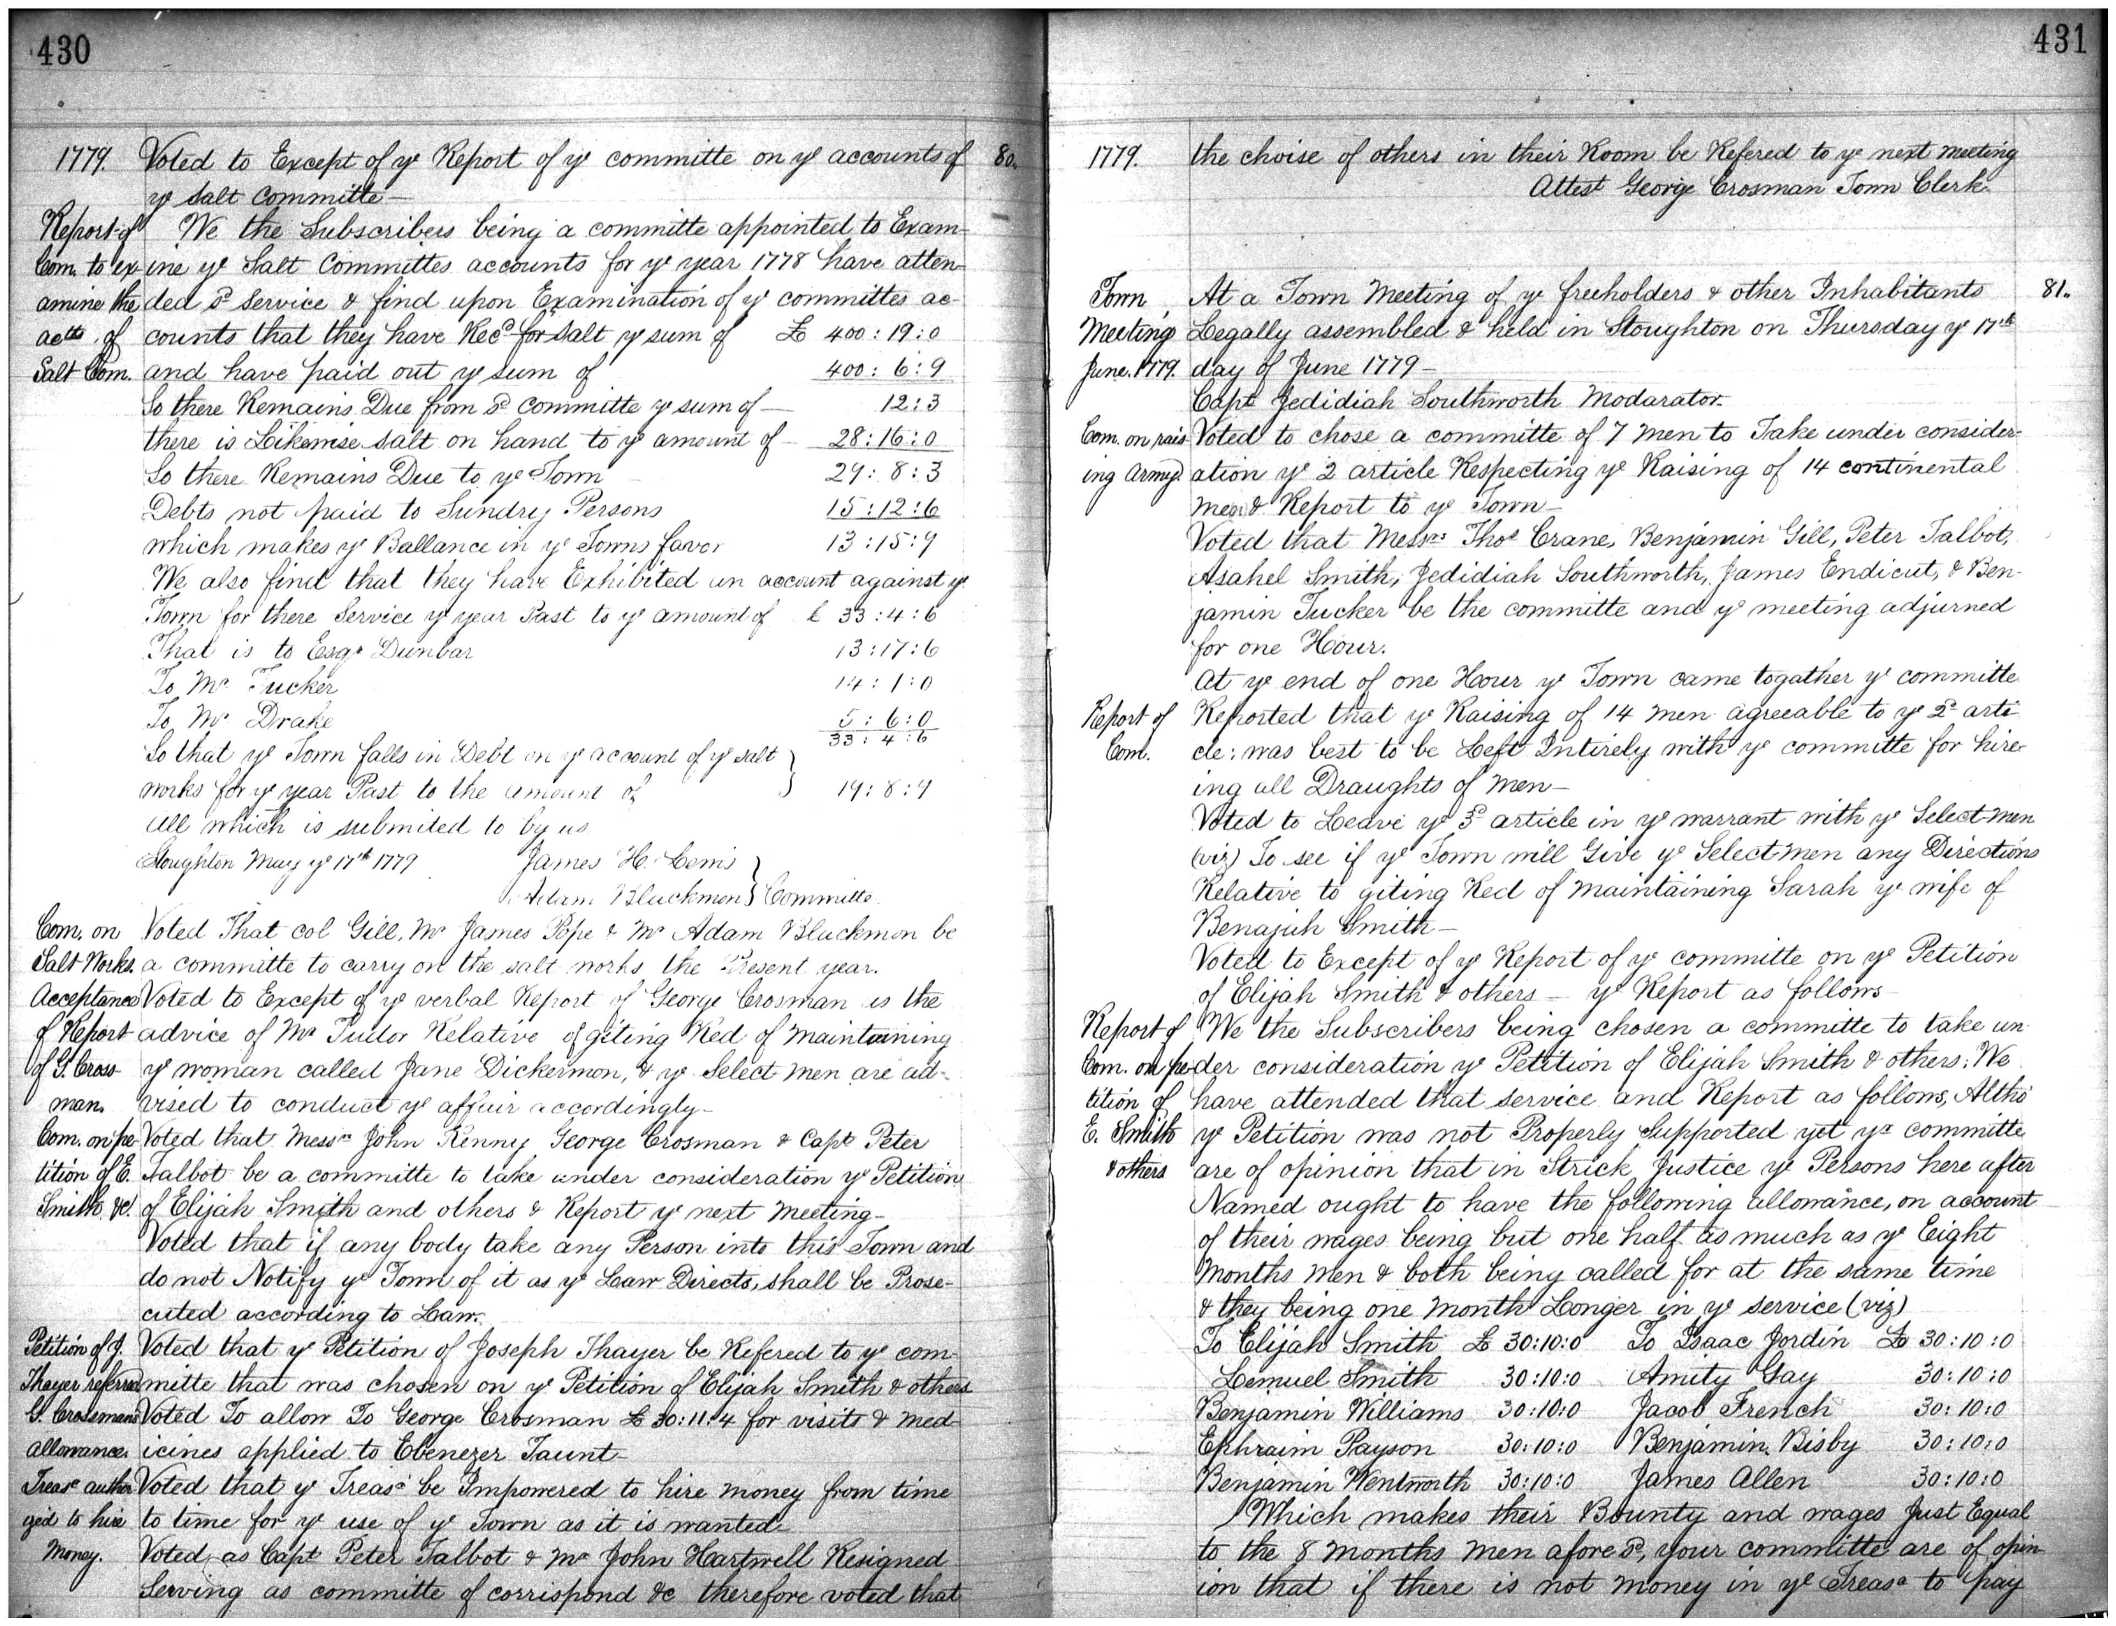 430
1779. Voted to Except of ye Report of ye committe on ye accounts of 80.
ye Salt Committe —
Report of We the Subscribers being a committe appointed to Exam-
Com. to ex- ine ye Salt Committes accounts for ye year 1778 have atten-
amine the ded sd Service & find upon Examination of ye committes ac-
actts of counts that they have Recd for Salt ye sum of £ 400:19:0
Salt Com. and have paid out ye sum of 400:6:9
So there Remains Due from sd committe ye sum of — 12:3
there is Likewise salt on hand to ye amount of — 28:16:0
So there Remains Due to ye Town 29:8:3
Debts not paid to Sundrey Persons 15:12:6
which makes ye Ballance in ye Towns favor 13:15:9
We also find that they have Exhibited an account against ye
Town for there Service ye year Past to ye amount of £ 33:4:6
That is to Esqr Dunbar 13:17:6
To Mr Tucker 14:1:0
To Mr Drake 5:6:0
33:4:6
So that ye Town falls in Debt on ye account of ye salt
works for ye year Past to the amount of 19:8:9
all which is submited to by us
Stoughton May ye 17th 1779 James H. Lewis
Adam Blackmon } Committe
Com. on Voted That col Gill, Mr James Pope & Mr Adam Blackmon be
Salt Works. a committe to carry on the salt works the Present year.
Acceptance Voted to Except of ye verbal Report of George Crosman is the
of Report advice of Mr Tudor Relative of giting Red of maintaining
of G. Cross- ye woman called Jane Dickermon, & ye Select men are ad-
man. vised to conduct ye affair accordingly —
Com. on pe- Voted that Messrs John Kenny George Crosman & Capt Peter
tition of E. Talbot be a committe to take under consideration ye Petition
Smith &c. of Elijah Smith and others & Report ye next Meeting —
Voted that if any body take any Person into this Town and
do not Notify ye Town of it as ye Law Directs, shall be Prose-
cuted according to Law.
Petition of J. Voted that ye Petition of Joseph Thayer be Refered to ye com-
Thayer referred mitte that was chosen on ye Petition of Elijah Smith & others
G. Crossmans Voted To allow To George Crosman £ 30:11:4 for visits & med-
allowance. icines applied to Ebenezer Taunt —
Treasr author- Voted that ye Treasr be Impowered to hire money from time
ized to hire to time for ye use of ye Town as it is wanted —
Money. Voted as Capt Peter Talbot & Mr John Hartwell Resigned
Serving as committe of corrispond &c therefore voted that
431
1779. the choise of others in their Room be Refered to ye next meeting
Attest George Crosman Town Clerk.
Town At a Town Meeting of ye freeholders & other Inhabitants 81.
Meeting Legally assembled & held in Stoughton on Thursday ye 17th
June. 1779. day of June 1779 —
Capt Jedidiah Southworth Modarator.
Com. on rais- Voted to chose a committe of 7 men to Take under consider-
ing Army. ation ye 2 article Respecting ye Raising of 14 continental
men & Report to ye Town —
Voted that Messrs Thos Crane, Benjamin Gill, Peter Talbot,
Asahel Smith, Jedidiah Southworth, James Endicut, & Ben-
jamin Tucker be the committe and ye meeting adjurned
for one Hour.
At ye end of one Hour ye Town came togather ye committe
Report of Reported that ye Raising of 14 men agreeable to ye 2d arti-
Com. cle: was best to be Left Intirely with ye committe for hire-
ing all Draughts of men —
Voted to Leave ye 3d article in ye warrant with ye Select-men
(viz) To see if ye Town will Give ye Select-men any Directions
Relative to giting Red of maintaining Sarah ye wife of
Benajah Smith —
Voted to Except of ye Report of ye committe on ye Petition
of Elijah Smith & others — ye Report as follows —
Report of We the Subscribers being chosen a committe to take un-
Com. on pe- der consideration ye Petition of Elijah Smith & others: We
tition of have attended that service and Report as follows, Altho
E. Smith ye Petition was not Properly Supported yet yr committe
& others are of opinion that in Strick Justice ye Persons here after
Named ought to have the following allowance, on account
of their wages being but one half as much as ye Eight
Months men & both being called for at the same time
& they being one month Longer in ye service (viz)
To Elijah Smith £ 30:10:0 To Isaac Jordin £ 30:10:0
Lemuel Smith 30:10:0 Amity Gay 30:10:0
Benjamin Williams 30:10:0 Jacob French 30:10:0
Ephraim Payson 30:10:0 Benjamin Bisby 30:10:0
Benjamin Wentworth 30:10:0 James Allen 30:10:0
Which makes their Bounty and wages Just Equal
to the 8 months men afore sd, your committe are of opin-
ion that if there is not money in ye Treasr to pay